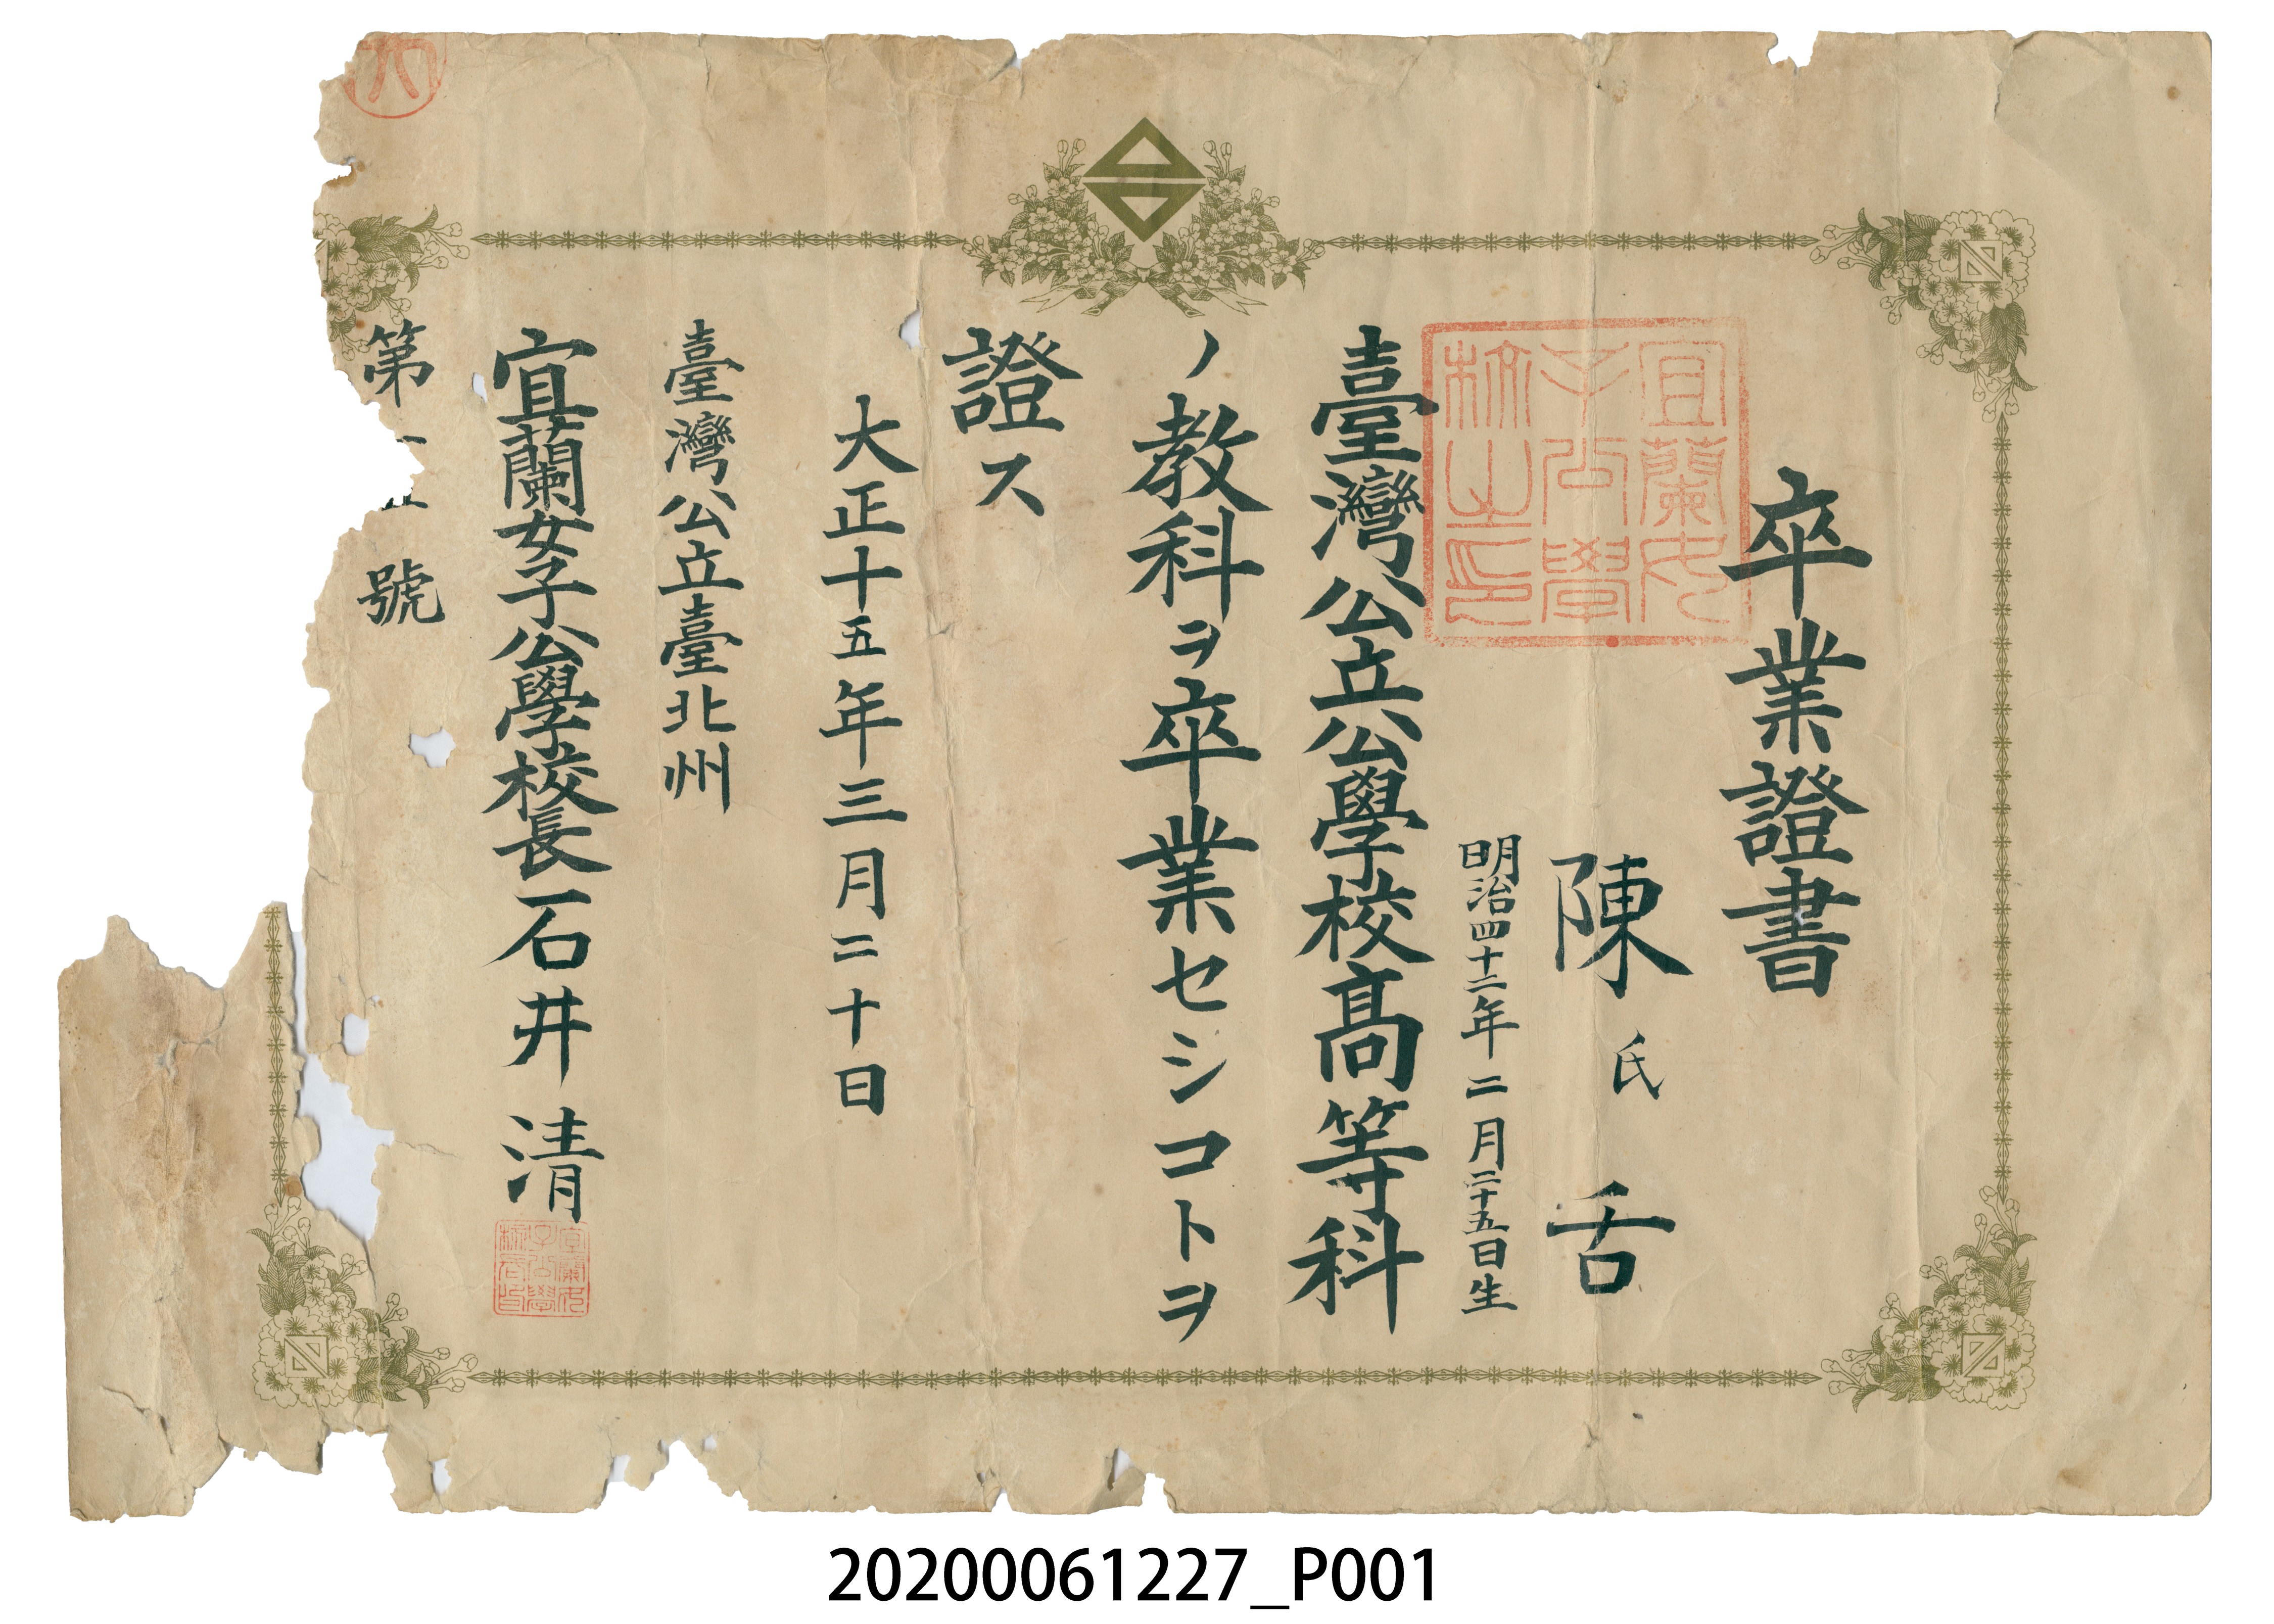 卒業證書
陳氏舌
明治四十二年二月二十五日生
臺灣公立公學校高等科
ノ教科ヲ卒業セシコトヲ
證ス
大正十五年三月二十日
臺灣公立臺北州
宜蘭女子公學校長石井清
第一 號
宜蘭女
子公學
校之印
宜蘭女
子公學
校長印
20200061227_P001